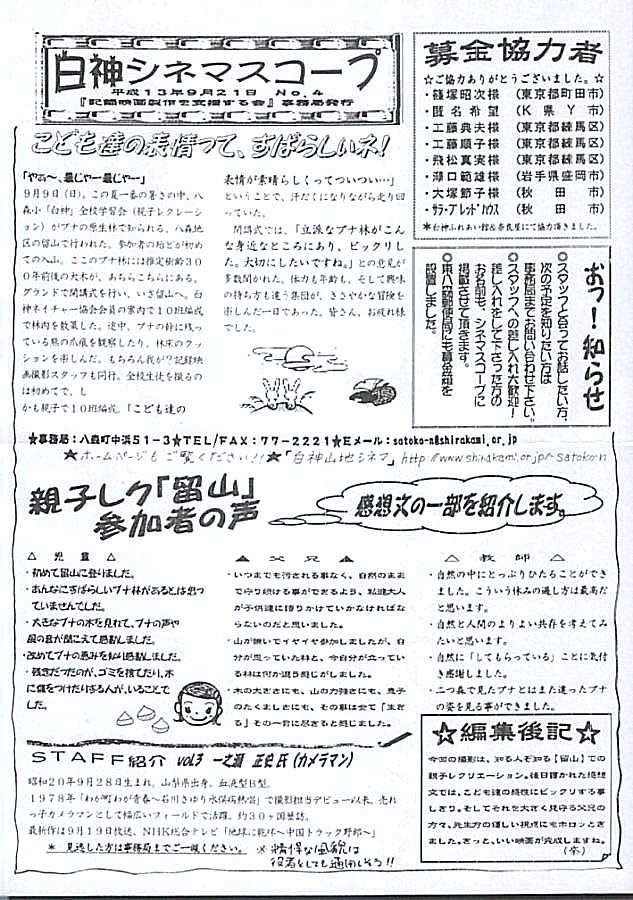 白神シネマスコープ
平成13年9月21日 No.4
『記録映画製作を支援する会』事務局発行
募金協力者
☆ご協力ありがとうございました。☆
・篠塚昭次様 (東京都町田市)
・匿名希望 (K県Y市)
・工藤典夫様 (東京都練馬区)
・工藤順子様 (東京都練馬区)
・飛松真実様 (東京都練馬区)
・滝口範雄様 (岩手県盛岡市)
・大塚節子様 (秋田市)
・サラ・ブレッドハウス (秋田市)
*白神ふれあい館&奈良屋にて協力頂きました。
こども達の表情って、すばらしいネ!
「やぁ〜、暑じゃー暑じゃー」
9月9日(日)。この夏一番の暑さの中、八
森小「白神」全校学習会(親子レクレーシ
ョン)がブナの原生林で知られる、八森地
区の留山で行われた。参加者の殆どが初め
ての入山。ここのブナ林には推定樹齢30
0年前後の大木が、あちらこちらにある。
グランドで開講式を行い、いざ留山へ。白
神ネイチャー協会会員の案内で10班編成
で林内を散策した。途中、ブナの幹に残っ
ている熊の爪痕を観察したり、林床のクッ
ションを楽しんだ。もちろん我が『記録映
画撮影スタッフも同行。全校生徒を撮るの
は初めてで、し
かも親子で10班編成。「こども達の
表情が素晴らしくってついつい…」
ということで、汗だくになりながら走り回
っていた。
閉講式では、「立派なブナ林がこん
な身近なところにあり、ビックリし
た。大切にしたいですね。」との意見が
多数聞かれた。体力も年齢も、そして興味
の持ち方も違う集団が、ささやかな冒険を
楽しんだ一日であった。皆さん、お疲れ様
でした。
おっ!知らせ
◎スタッフと会ってお話したい方、
次の予定を知りたい方は
事務局までお問い合わせ下さい。
◎スタッフへの差し入れ大歓迎!
差し入れをして下さった方の
お名前も、シネマスコープに
掲載させて頂きます。
◎東八森郵便局にも募金箱を
設置しました。
★事務局:八森町中浜51-3★TEL/FAX:77-2221★Eメール:satoko-n@shirakami.or.jp
★ホームページもご覧ください!!★「白神山地シネマ」http://www.shirakami.or.jp/~satoko-n
親子レク「留山」
参加者の声
感想文の一部を紹介します。
△ 児童 △
・初めて留山に登りました。
・あんなにすばらしいブナ林があるとは思っ
ていませんでした。
・大きなブナの木を見れて、ブナの声や
風の音が聞こえて感動しました。
・改めてブナの恵みを知り感動しました。
・残念だったのが、ゴミを捨てたり、木
に傷をつけたりする人が、いることで
した。
▲ 父兄 ▲
・いつまでも汚される事なく、自然のまま
で守り続ける事ができるよう、私達大人
が子供達に語りかけていかなければな
らないのだと思いました。
・山が嫌いでイヤイヤ参加しましたが、自
分が思っていた林と、今自分が立ってい
る林は何か違う感じがしました。
・木の大きさにも、山の力強さにも、息子
のたくましさにも、その事は全て「生き
る」その一言に尽きると感じました。
△ 教師 △
・自然の中にとっぷりひたることができ
ました。こういう休みの過し方は最高だ
と思います。
・自然と人間のよりよい共存を考えてみ
たいと思います。
・自然に「してもらっている」ことに気付
き感謝しました。
・二つ森で見たブナとはまた違ったブナ
の姿を見る事ができました。
STAFF紹介 vol.3 一之瀬 正史氏(カメラマン)
昭和20年9月28日生まれ。山梨県出身。血液型B型。
1978年「わが町わが青春〜石川さゆり水俣病熱唱」で撮影担当デビュー以来、売れ
っ子カメラマンとして幅広いフィールドで活躍。約30ヶ国歴訪。
最新作は9月19日放送、NHK総合テレビ「地球に乾杯〜中国トラック野郎〜」
* 見逃した方は事務局までご一報ください。
※精悍な風貌は
役者としても通用しそう!!
☆編集後記☆
今回の撮影は、知る人ぞ知る【留山】での
親子レクリエーション。後日書かれた感想
文では、こども達の感性にビックリする事
しきり。そしてそれを大きく見守る父兄の
方々、先生方の優しい視点にもホロッとき
ました。きっと、いい映画が完成しますね。